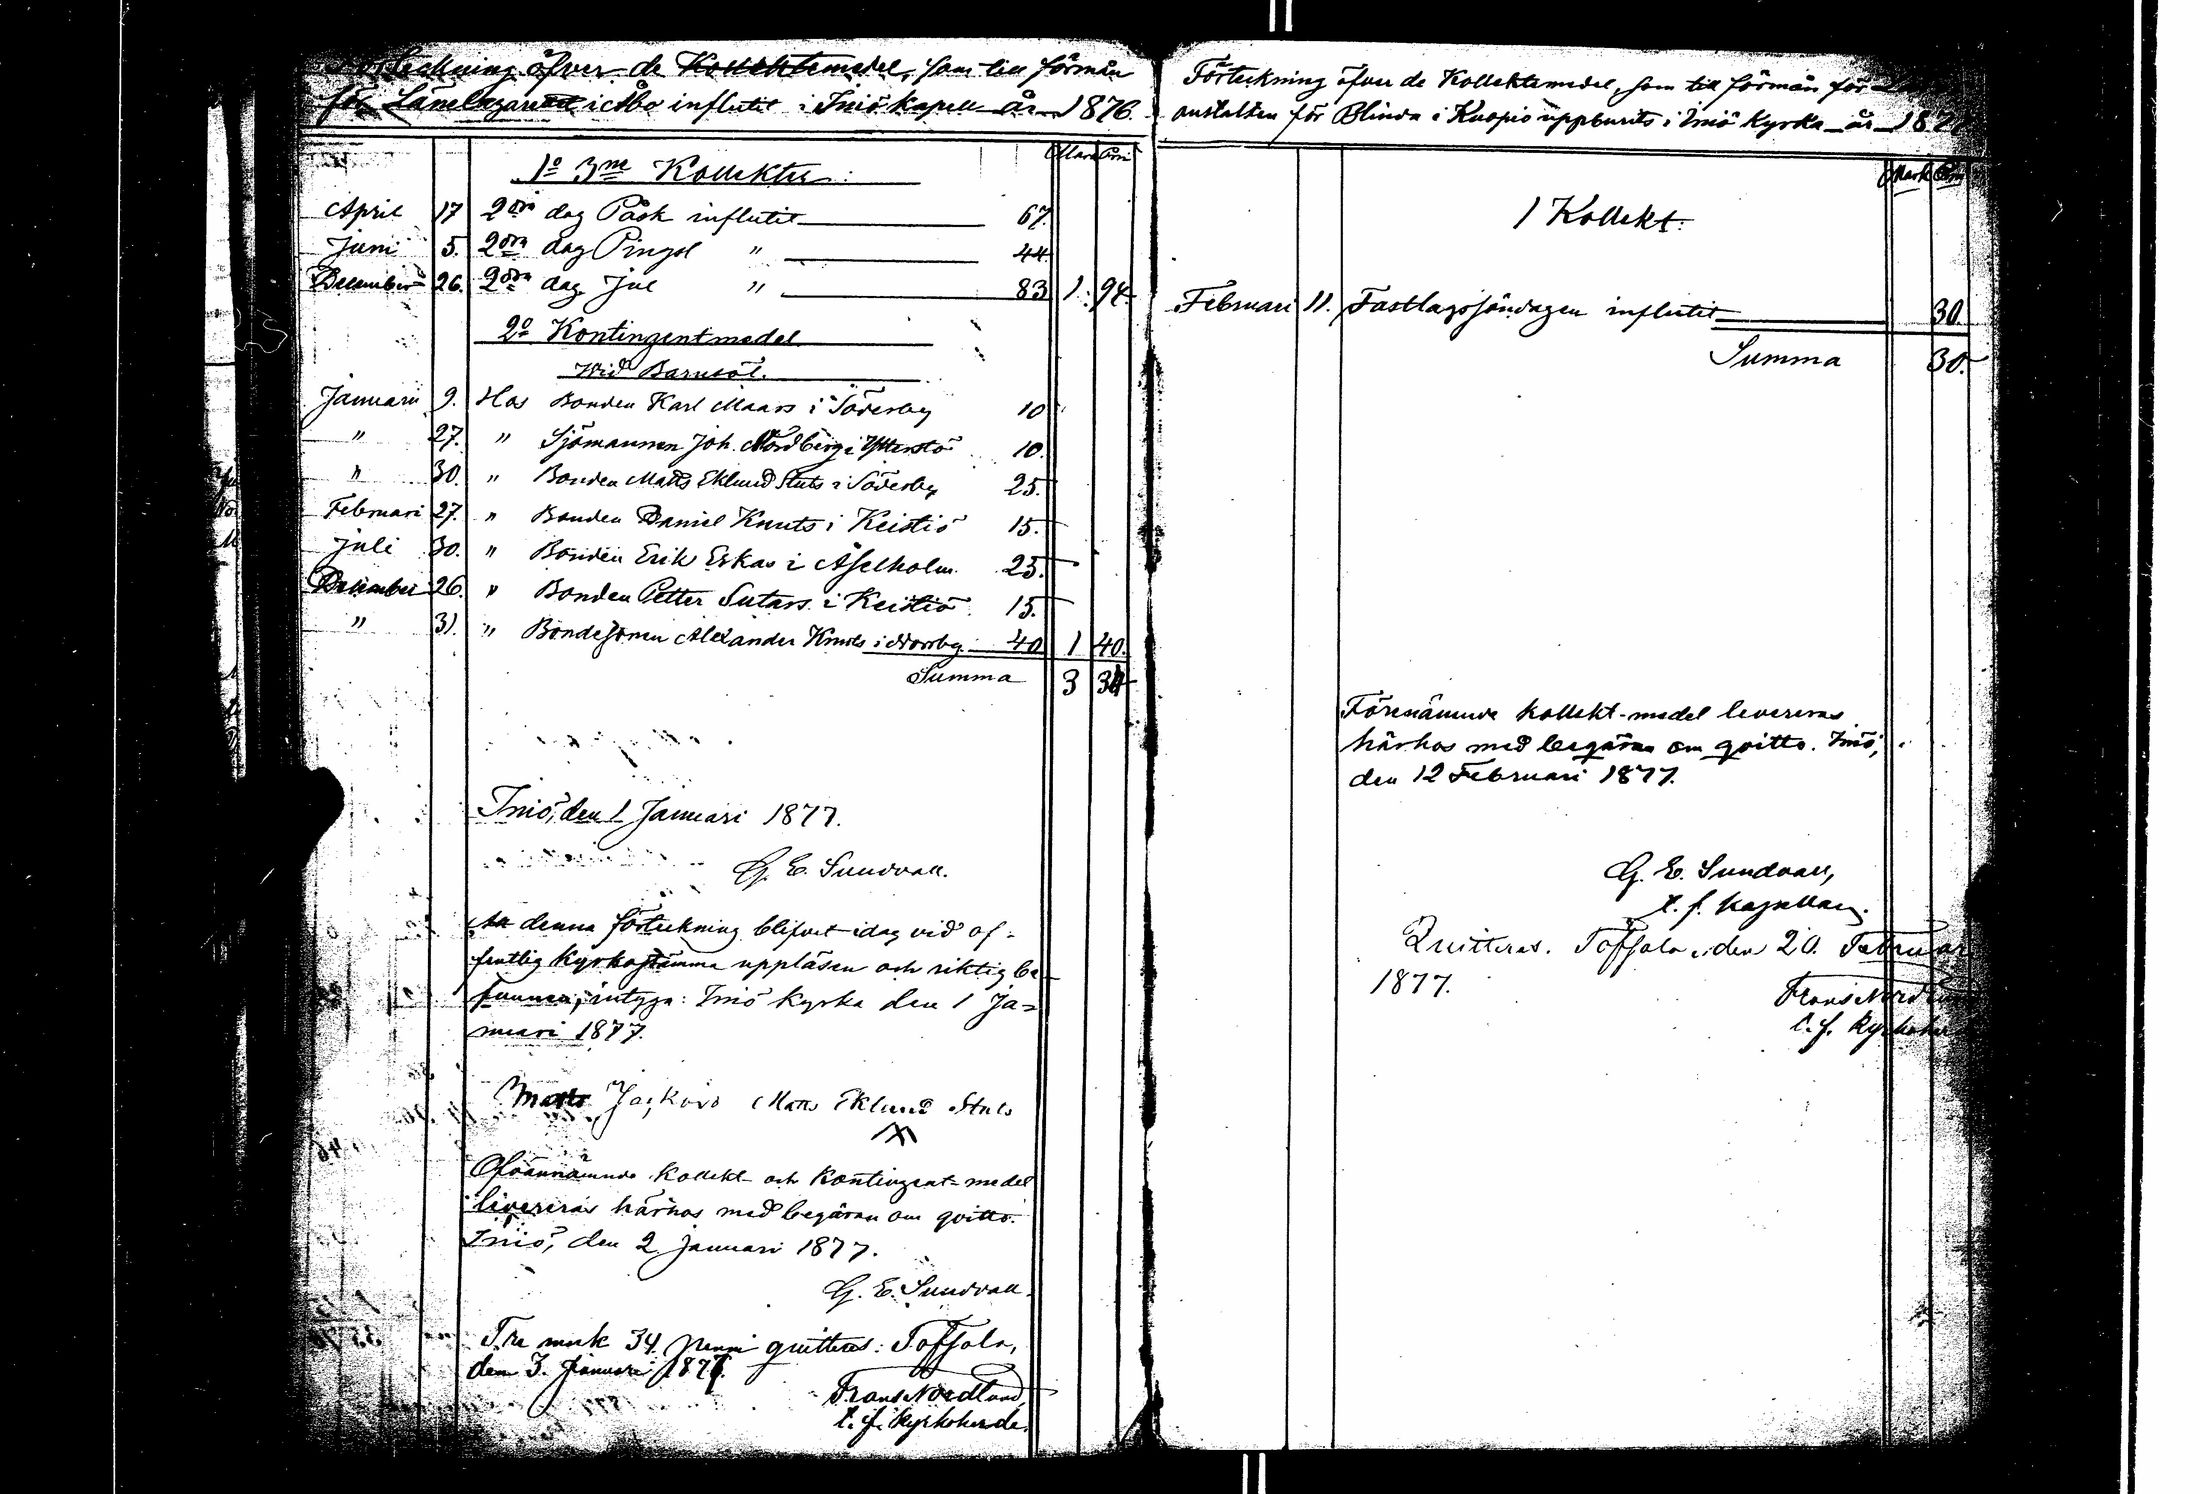 Förteckning öfver de Kollektemedel, som till förmån
för Länelazarett i Åbo influtit i Iniö kapell år 1876.
Mark Pni
1o 3ne Kollekter:
April 17 2dra dag Påsk influtit 67.
Juni 5. 2dra dag Pingst " 44.
December 26. 2dra dag Jul " 83 1. 94.
2o Kontingentmedel
Wid Barnsöl.
Januari 9. Hos Bonden Karl Maars i Söderby 10
" 27. " Sjömannen Joh. Nordberg i 10.
" 30. " Bonden Matts Eklund Stuts i Söderby 25.
Februari 27. " Bonden Daniel Knuts i Keistiö 15.
Juli 30. " Bonden Erik Eskas i Åselholm 25.
December 26. " Bonden Petter Sutars i Keistiö 15.
" 31. " Bondesonen Alexander Knuts i Norrby 40 1 40.
Summa 3 34
Iniö, den 1 Januari 1877.
G. E. Sundvall.
Att denna förteckning blifvit idag vid of-
fentlig kyrkostämma uppläsen och riktig be-
funnen, intyga: Iniö kyrka den 1 Ja-
nuari 1877.
Matts Matts Eklund Stuts
Ofvannämnde kollekt- och kontingent-medel
levereras härhos med begäran om qvitto.
Iniö, den 2 Januari 1877.
G. E. Sundvall.
Tre mark 34 penni quitteras: Töfsala,
den 3. Januari 1877.
Frans Nordlund
t. f. kyrkoherde.
Förteckning öfver de Kollektemedel, som till förmån för
anstalten för Blinda i Kuopio uppburits i Iniö kyrka år 187
Mark Pni
1 Kollekt.
Februari 11. Fastlagssöndagen influtit 30.
Summa 30.
Förenämnde kollekt-medel levereras
härhos med begäran om qvitto. Iniö,
den 12 Februari 1877.
G. E. Sundvall,
t. f. kapellan.
Quitteras. Töfsala, den 20. Februari
1877.
Frans Nordlund
t. f. kyrkoher